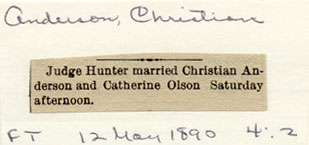 Anderson, Christian
Judge Hunter married Christian An-
derson and Catherine Olson Saturday
afternoon.
FT 12 May 1890 4:2